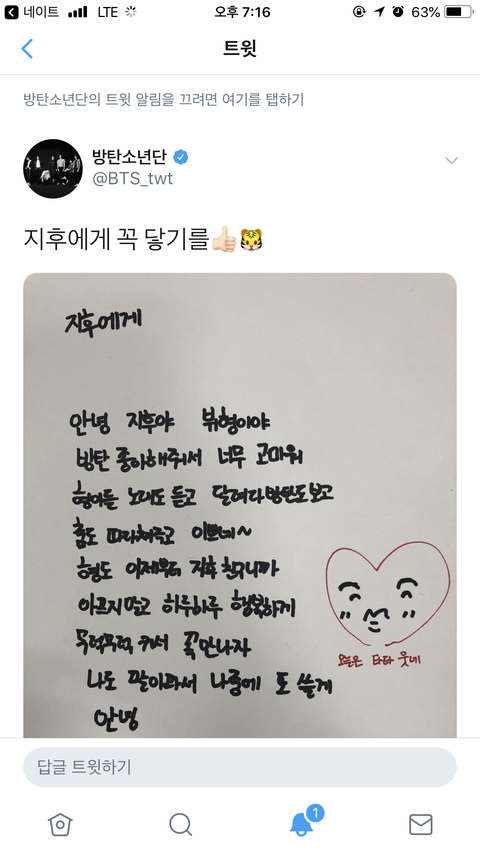 네이트 LTE 오후 7:16 63%
트윗
방탄소년단의 트윗 알림을 끄려면 여기를 탭하기
방탄소년단
@BTS_twt
지후에게 꼭 닿기를👍🏻🐯
지후에게
안녕 지후야 뷔형이야
방탄 좋아해줘서 너무 고마워
형아들 노래도 듣고 달려라방탄도보고
춤도 따라춰주고 이쁘네~
형도 이제부터 지후 친구니까
아프지말고 하루하루 행복하게
무럭무럭 커서 꼭 만나자
오늘은 타타 웃네
나도 말아와서 나중에 또 쓸게
안녕
답글 트윗하기
1